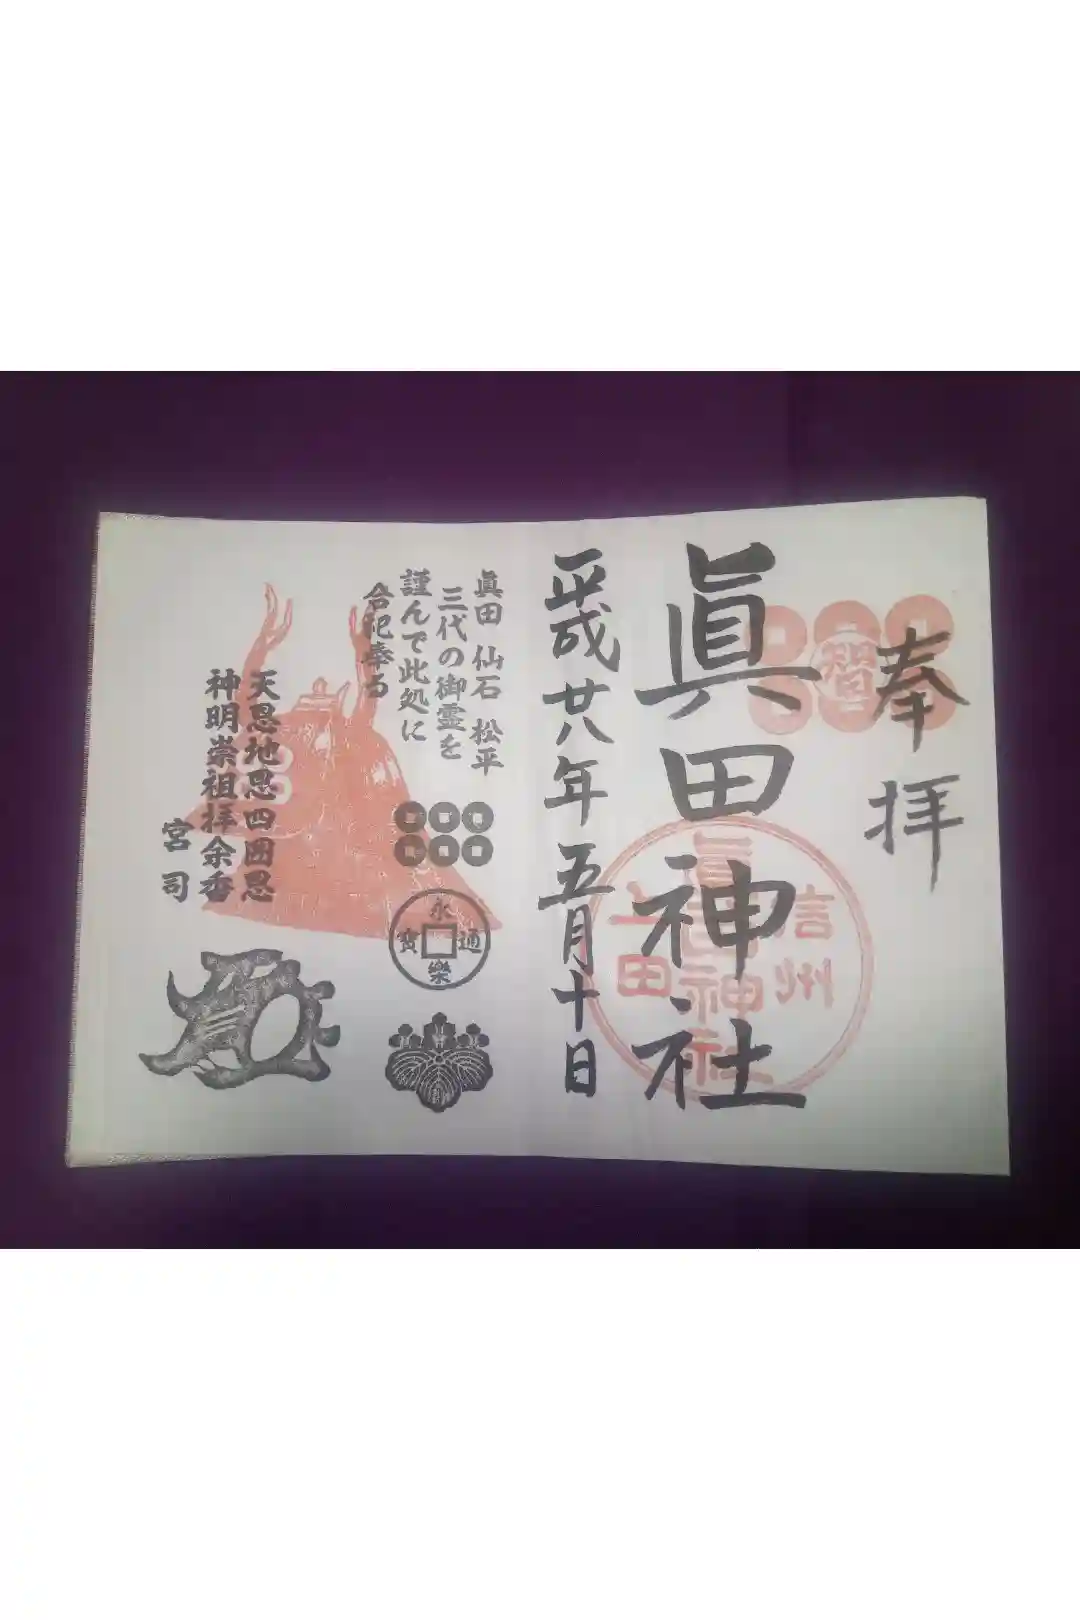 奉拝
智
眞田神社
信州
眞田神社
上田
平成廿八年五月十日
眞田 仙石 松平
三代の御霊を
謹んで此処に
合祀奉る
永樂通寳
天恩地恩四囲恩
神明崇祖拝余香
宮司